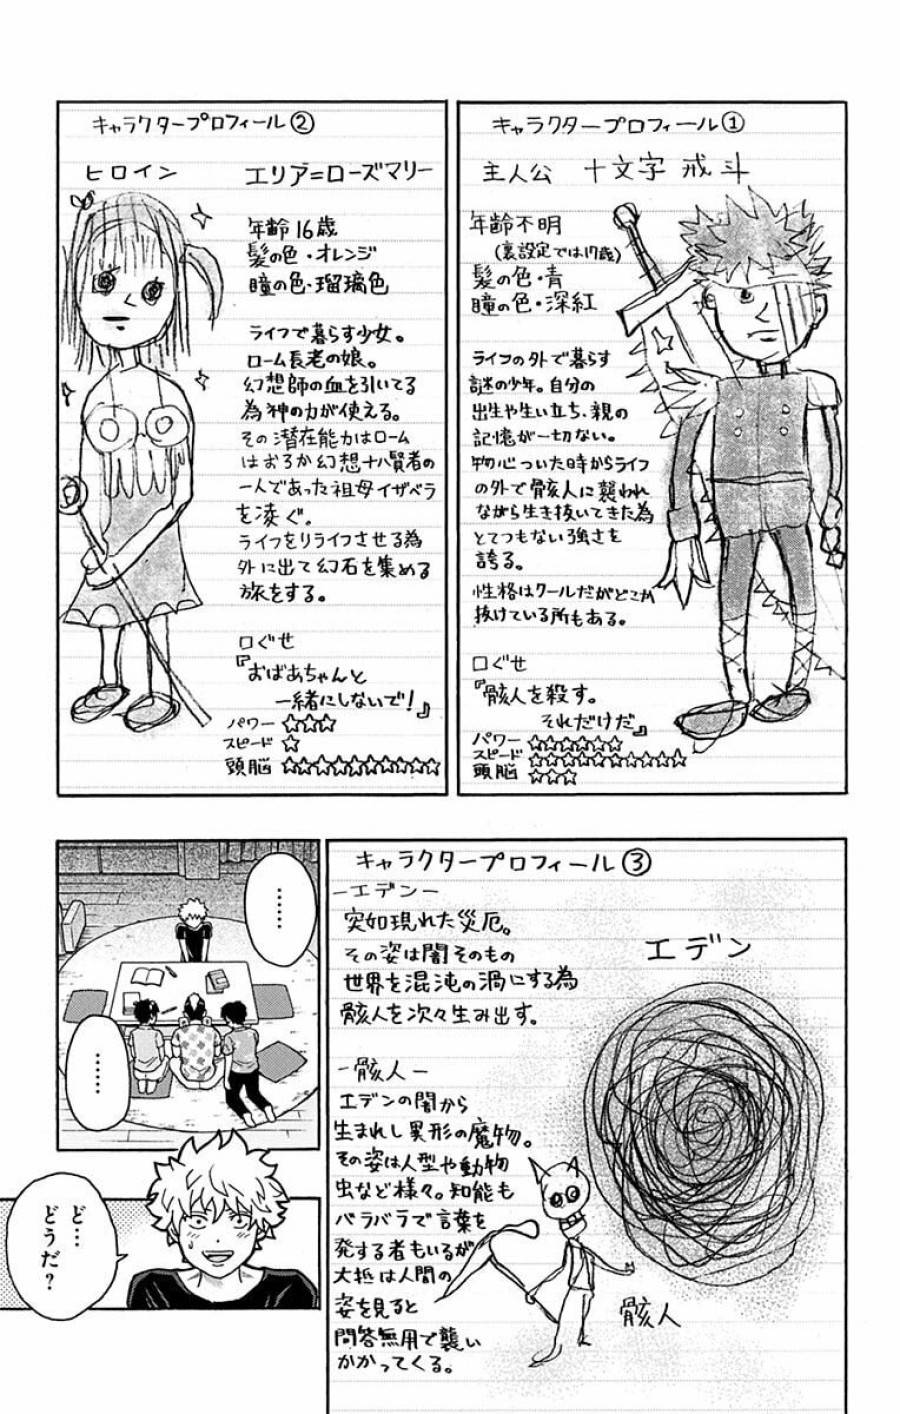 キャラクタープロフィール①
主人公 十文字 戒斗
年齢不明
(裏設定では17歳)
髪の色・青
瞳の色・深紅
ライフの外で暮らす
謎の少年。自分の
出生や生い立ち、親の
記憶が一切ない。
物心ついた時からライフ
の外で骸人に襲われ
ながら生き抜いてきた為
とてつもない強さを
誇る。
性格はクールだがどこか
抜けている所もある。
口ぐせ
『骸人を殺す。
それだけだ』
パワー ☆☆☆☆☆☆
スピード ☆☆☆☆☆☆☆☆☆☆
頭脳 ☆☆☆
キャラクタープロフィール②
ヒロイン エリア=ローズマリー
年齢16歳
髪の色・オレンジ
瞳の色・瑠璃色
ライフで暮らす少女。
ローム長老の娘。
幻想師の血を引いてる
為神の力が使える。
その潜在能力はローム
はおろか幻想十八賢者の
一人であった祖母イザベラ
を凌ぐ。
ライフをリライフさせる為
外に出て幻石を集める
旅をする。
口ぐせ
『おばあちゃんと
一緒にしないで!』
パワー ☆☆☆
スピード ☆
頭脳 ☆☆☆☆☆☆☆☆☆☆
キャラクタープロフィール③
－エデン－
突如現れた災厄。
その姿は闇そのもの
世界を混沌の渦にする為
骸人を次々生み出す。
エデン
－骸人－
エデンの闇から
生まれし異形の魔物。
その姿は人型や動物
虫など様々。知能も
バラバラで言葉を
発する者もいるが
大抵は人間の
姿を見ると
問答無用で襲い
かかってくる。
骸人
……
……
ど…
どうだ?